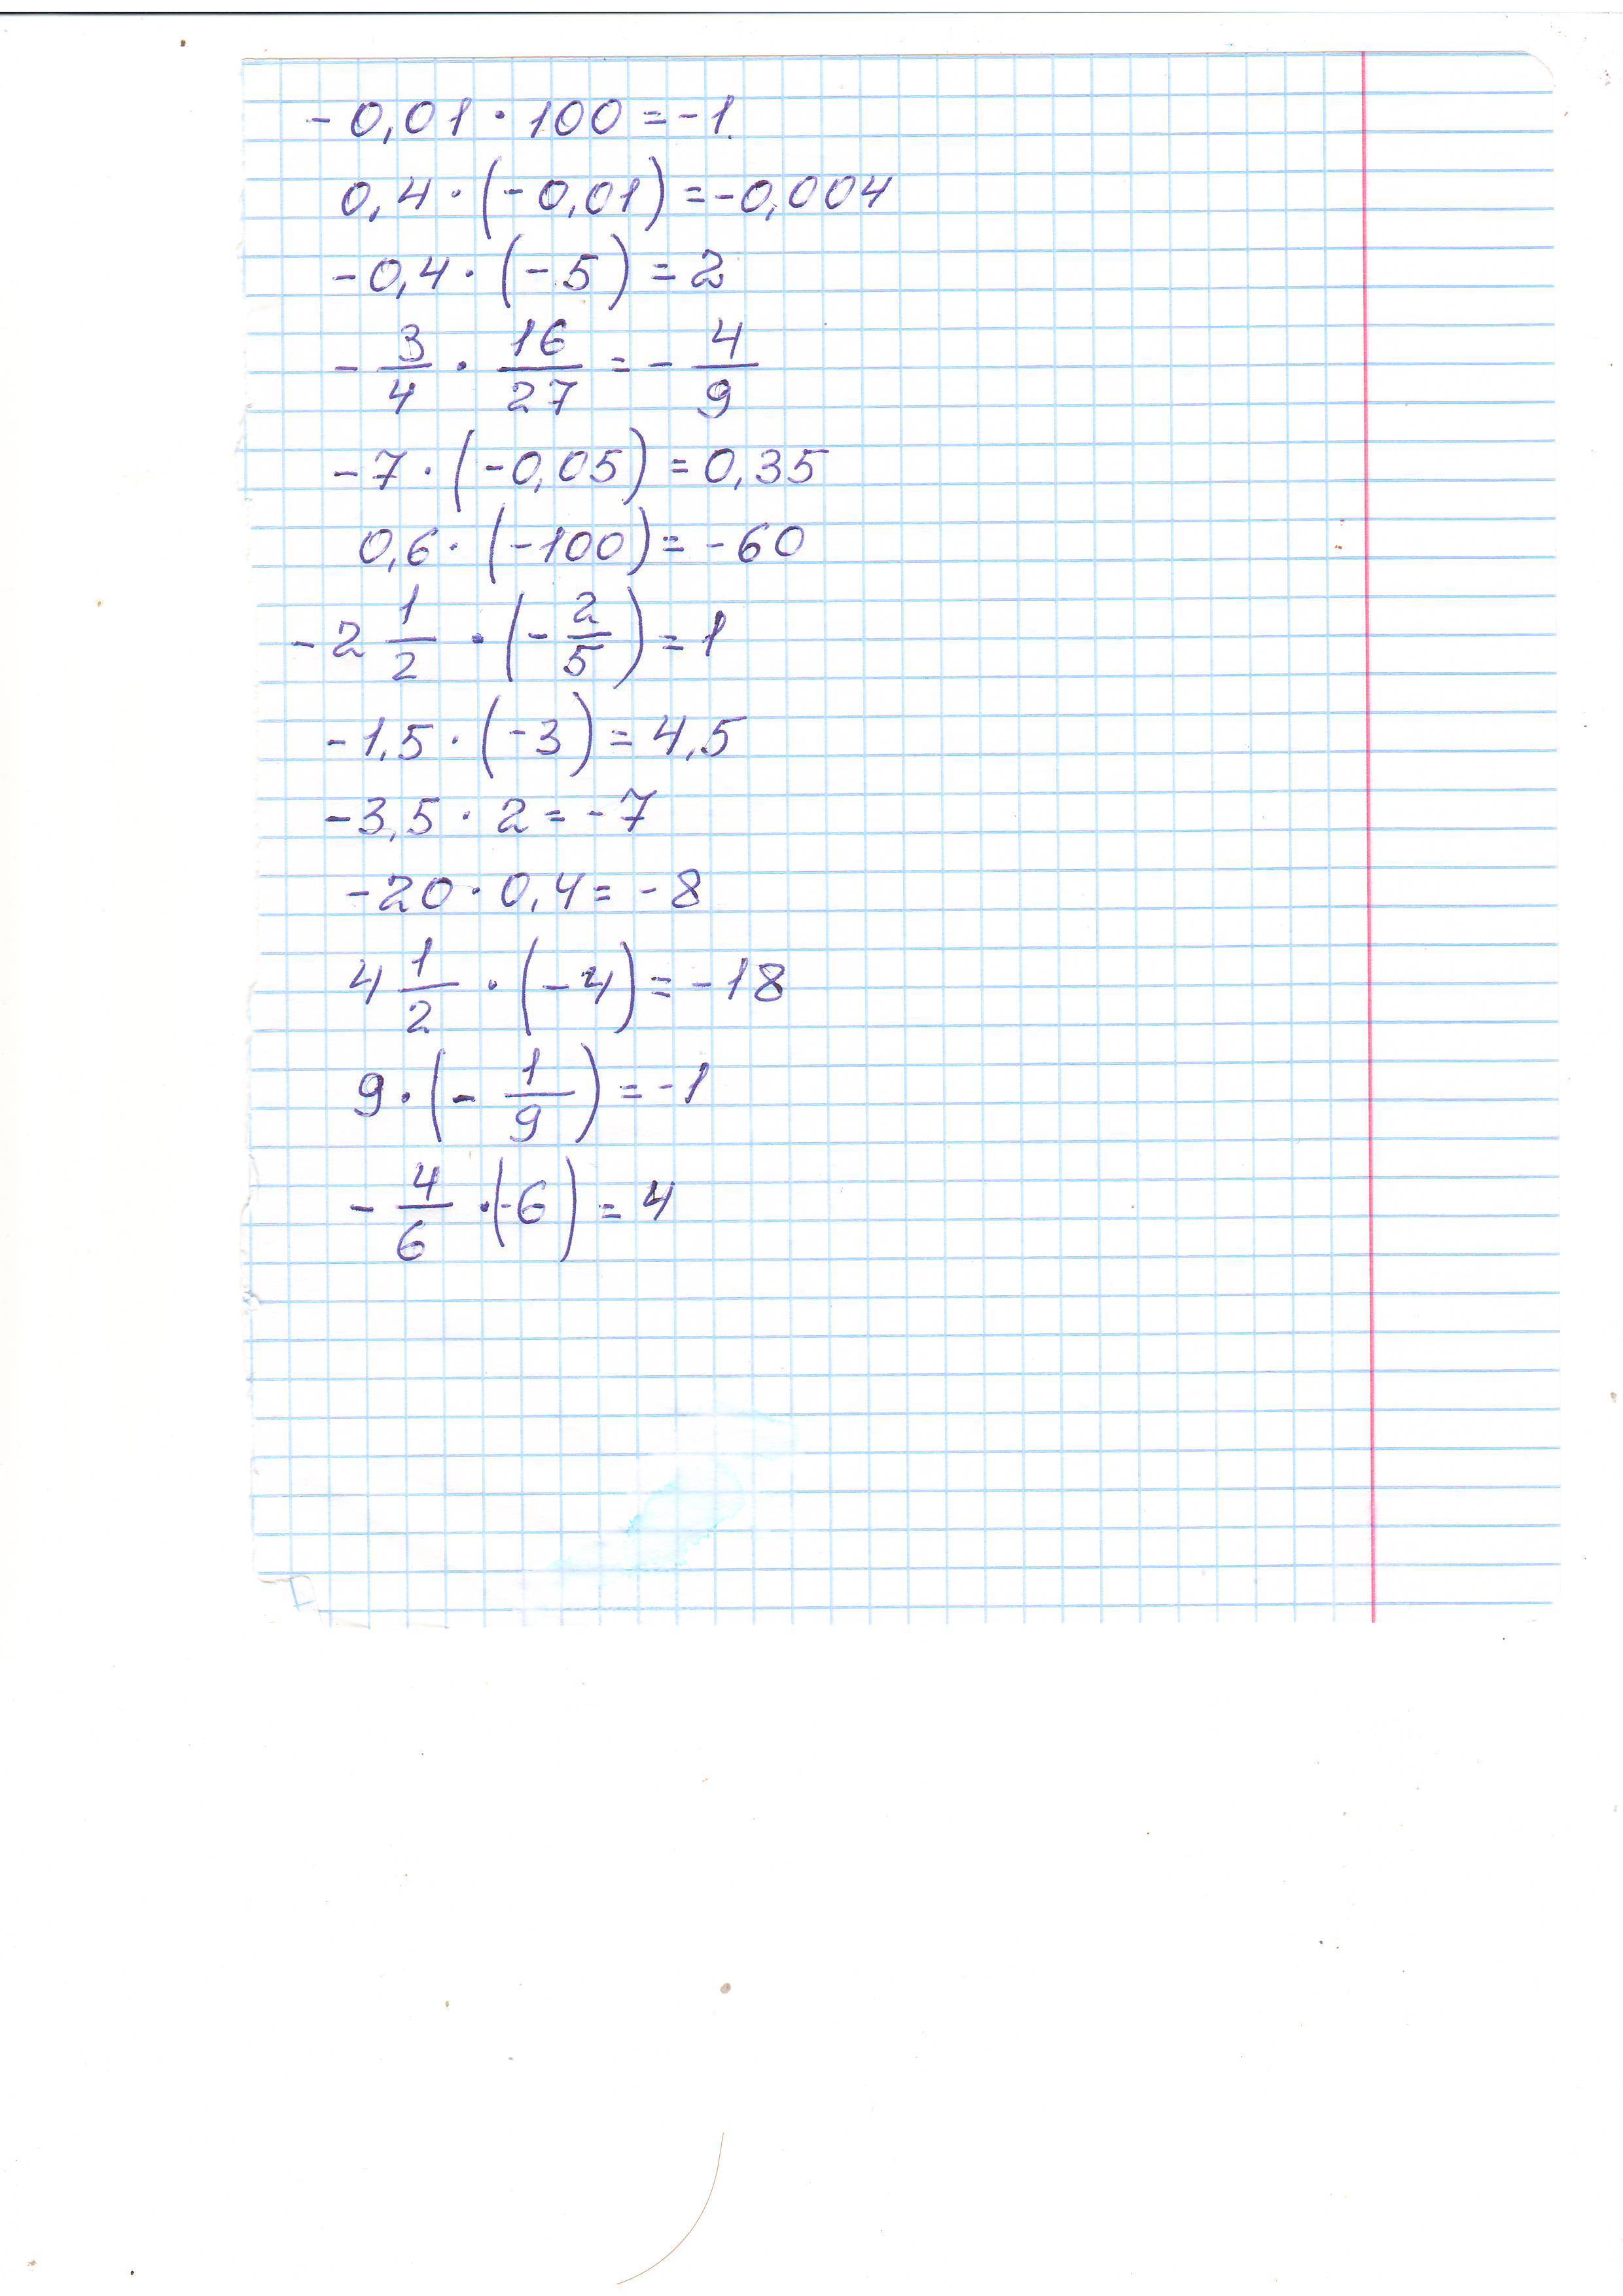 -0,01·100=-1.
0,4·(-0,01)=-0,004
-0,4·(-5)=2
-3/4·16/27=-4/9
-7·(-0,05)=0,35
0,6·(-100)=-60
-2 1/2·(-2/5)=1
-1,5·(-3)=4,5
-3,5·2=-7
-20·0,4=-8
4 1/2·(-4)=-18
9·(-1/9)=-1
-4/6·(-6)=4